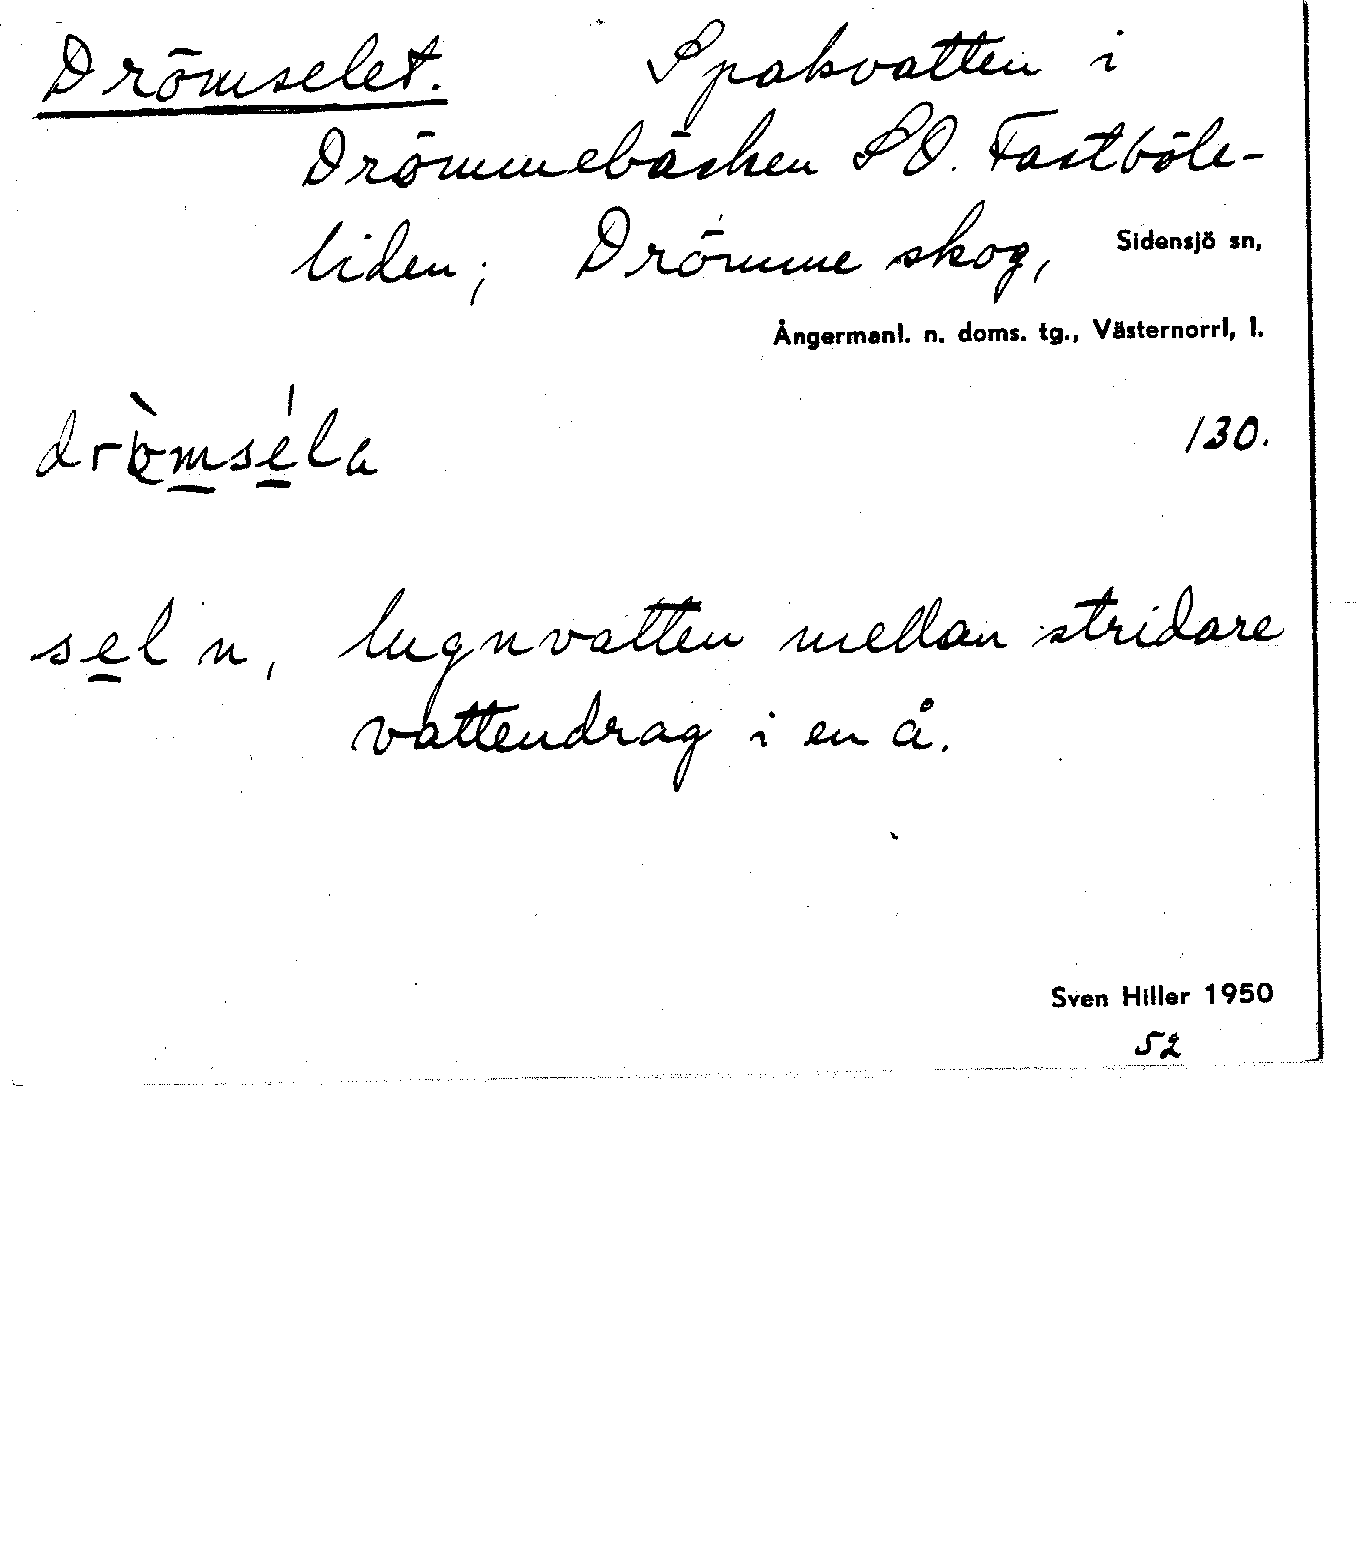 Drömselet. Spakvatten i
Drömmebäcken SO. Tastböle-
liden; Drömme skog, Sidensjö sn,
Ångermanl. n. doms. tg., Västernorrl, l.
130.
sel n, lugnvatten mellan stridare
vattendrag i en å.
Sven Hiller 1950
52